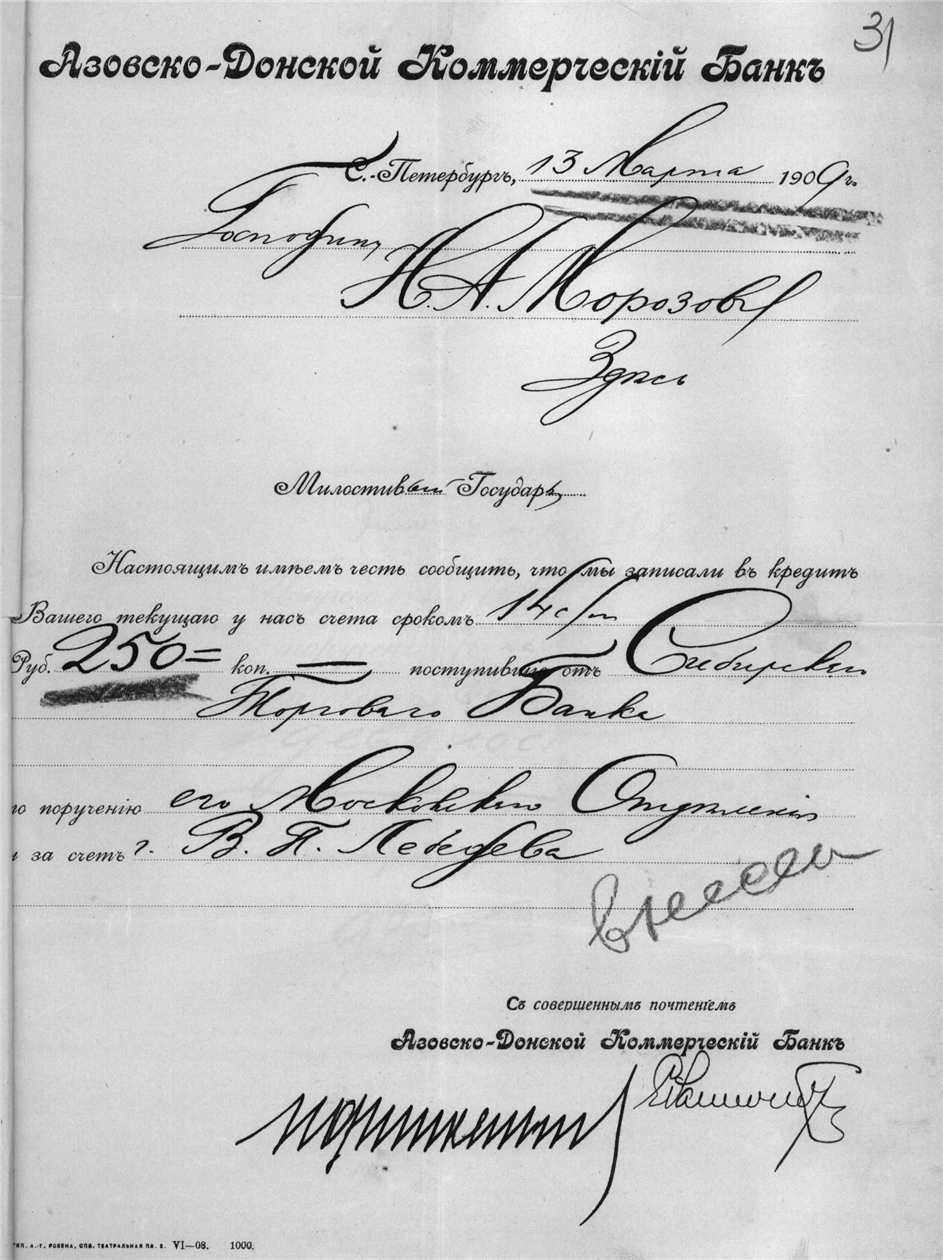 31
Азовско-Донской Коммерческій Банкъ
С.-Петербургъ, 13 Марта 1909 г.
Господину
Н. А. Морозову
Здѣсь
Милостивый Государь,
Настоящимъ имѣемъ честь сообщить, что мы записали въ кредитъ
Вашего текущаго у насъ счета срокомъ 14 с/м
Руб. 250= коп. — поступившіе отъ Сибирскаго
Торговаго Банка
по порученію его Московскаго Отдѣленія
и за счетъ г. В. П. Лебедева
Съ совершеннымъ почтеніемъ
Азовско-Донской Коммерческій Банкъ
ТИП. А.-Г. РОЗЕНА, СПВ. ТЕАТРАЛЬНАЯ ПЛ. 2. VI—08. 1000.